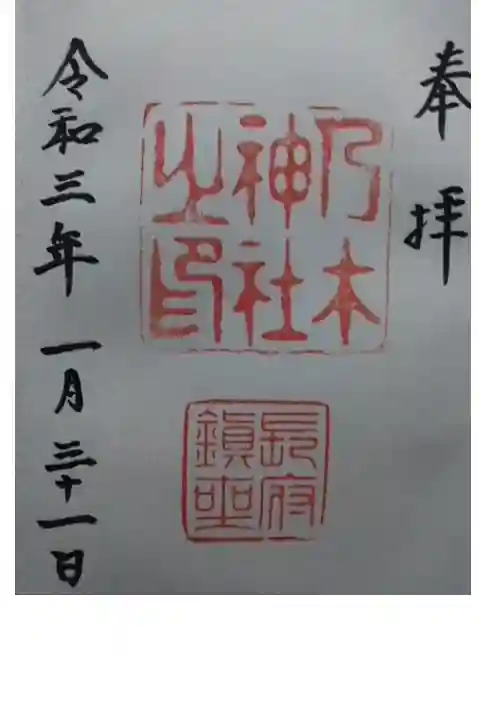 奉拝
乃木
神社
之印
長府
鎮座
令和三年 一月三十一日